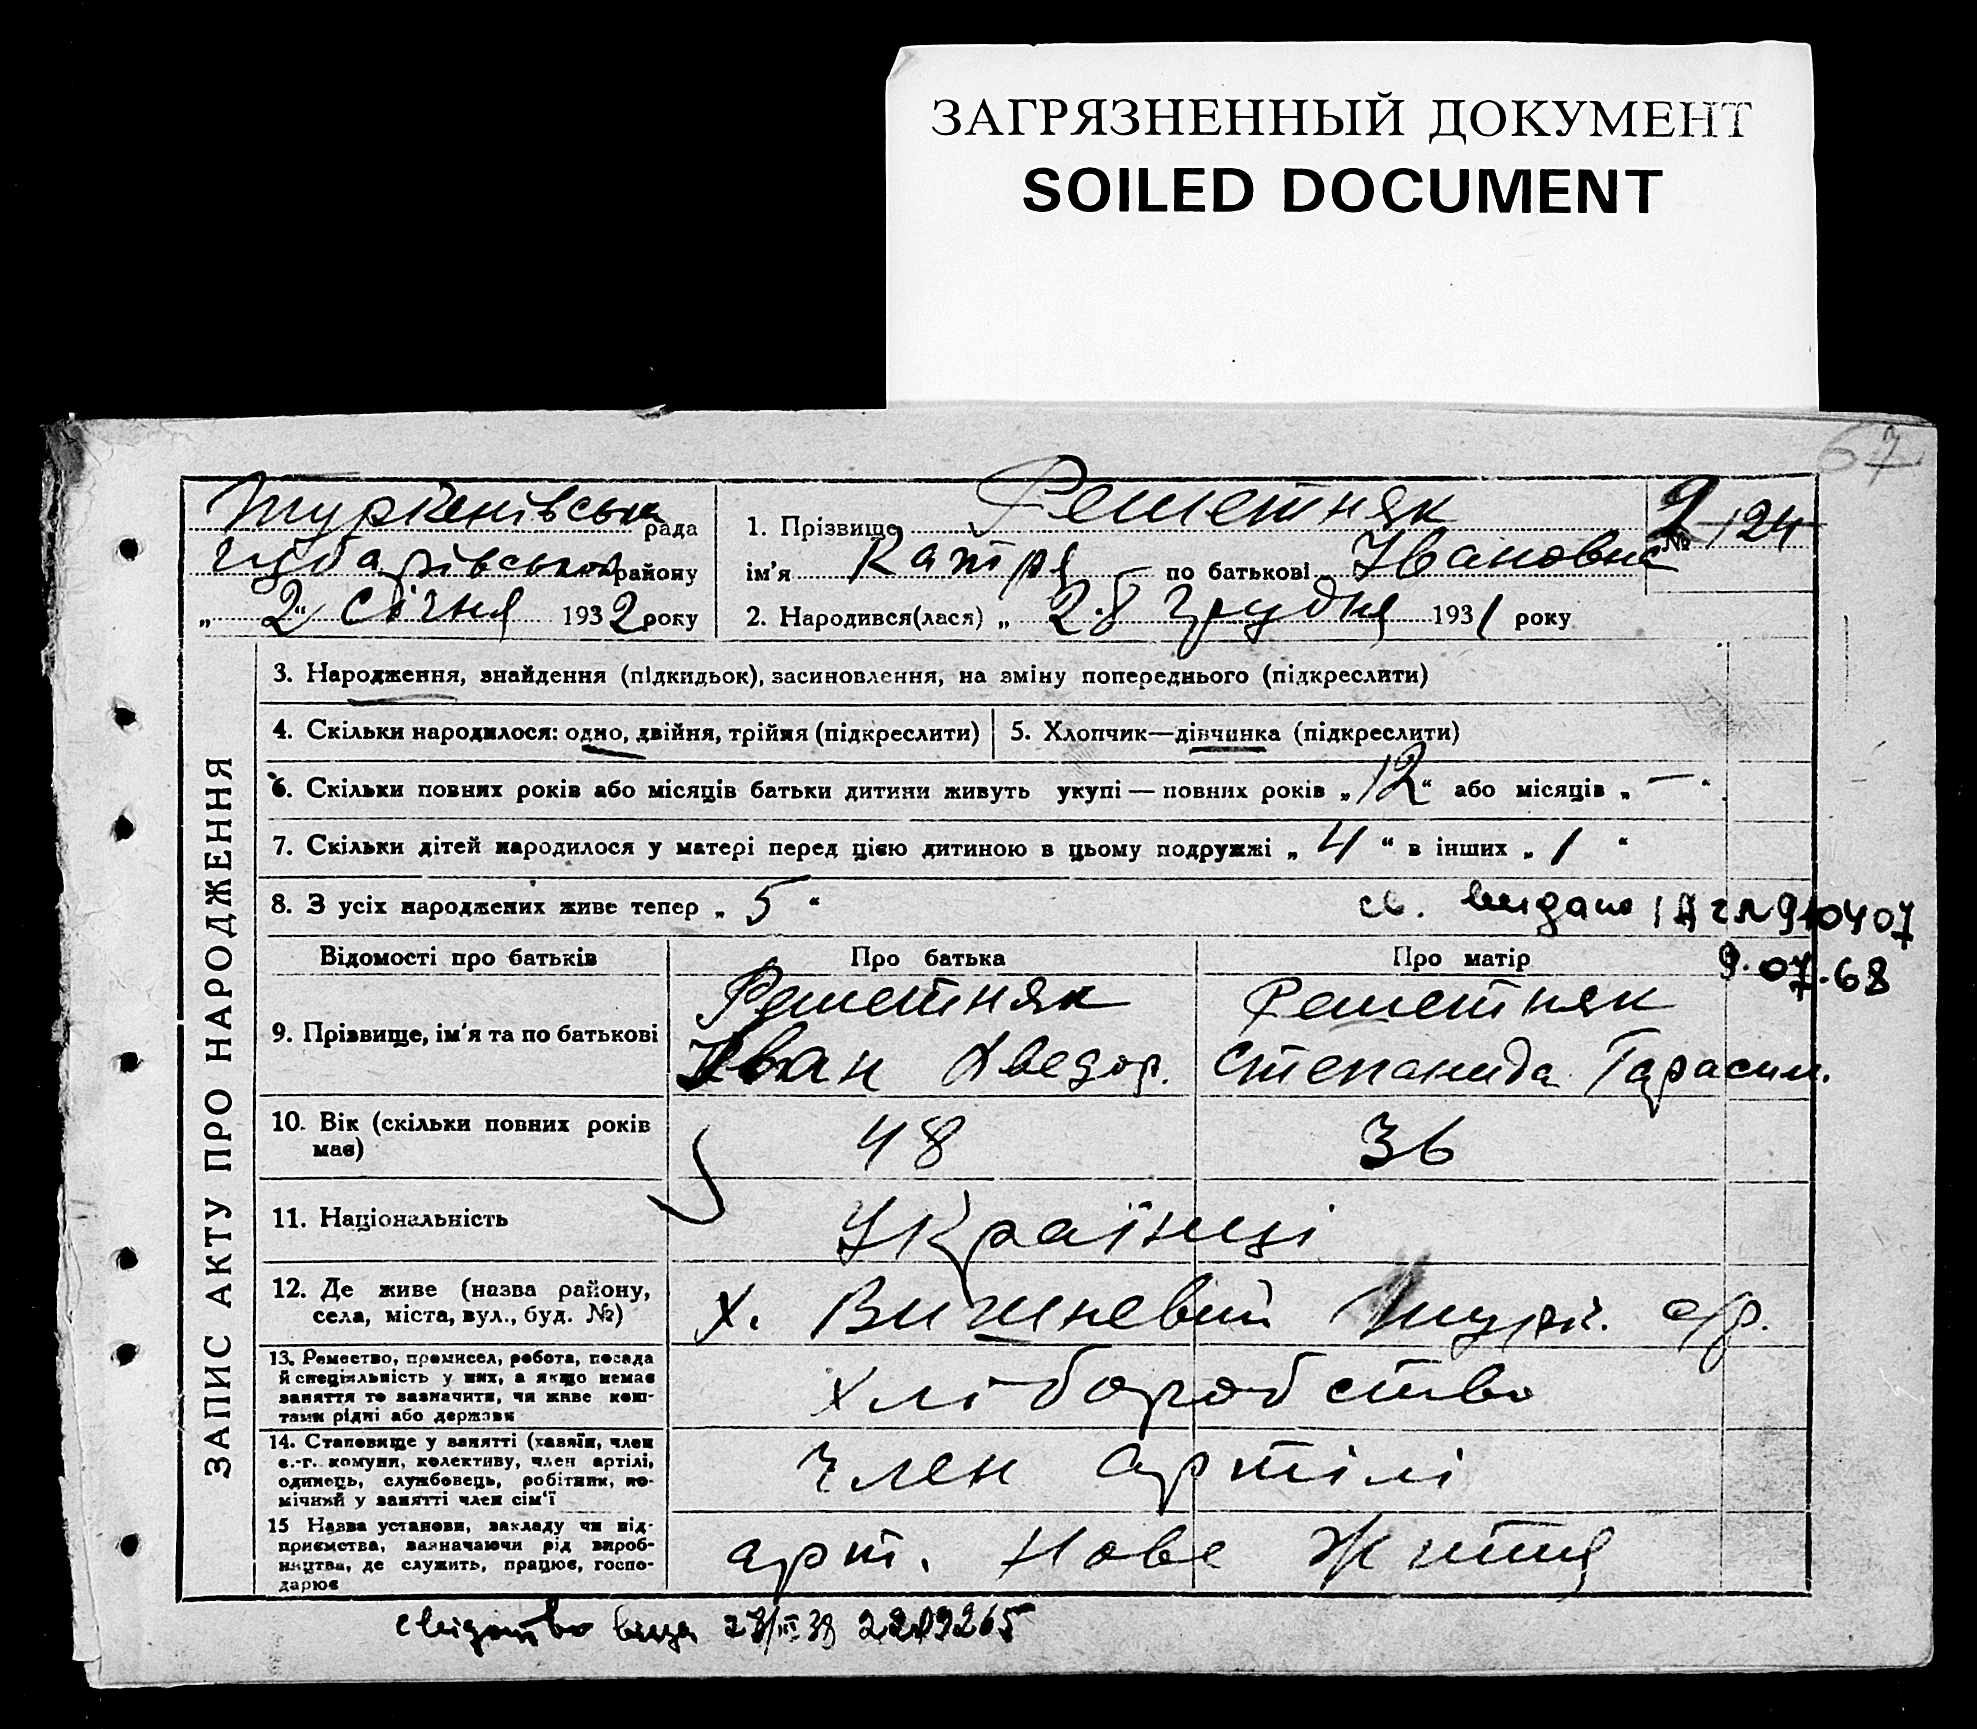 ЗАГРЯЗНЕННЫЙ ДОКУМЕНТ
SOILED DOCUMENT
67
Туркенівська рада
Чубарівського району
„ 2 " січня 1932 року
1. Прізвище Решетняк
ім'я Катря по батькові Івановна
№ 2 124
2. Народився(лася) „ 28 грудня 1931 року
ЗАПИС АКТУ ПРО НАРОДЖЕННЯ
3. Народження, знайдення (підкидьок), засиновлення, на зміну попереднього (підкреслити)
4. Скільки народилося: одно, двійня, трійня (підкреслити)
5. Хлопчик—дівчинка (підкреслити)
6. Скільки повних років або місяців батьки дитини живуть укупі — повних років „ 12 " або місяців „ — "
7. Скільки дітей народилося у матері перед цією дитиною в цьому подружжі „ 4 " в інших „ 1 "
8. З усіх народжених живе тепер „ 5 "
св. видано 910407
9.07.68
Відомості про батьків Про батька Про матір
9. Прізвище, ім'я та по батькові
Решетняк
Іван Хведор.
Решетняк
Степанида Тарасим.
10. Вік (скільки повних років має) 48 36
11. Національність Українці
12. Де живе (назва району,
села, міста, вул., буд. №)
х. Вишневий Турк. с/р.
13. Ремество, промисел, робота, посада
й спеціяльність у них, а якщо немає
заняття то зазначити, чи живе кош-
тами рідні або держави
хліборобство
14. Становище у занятті (хазяїн, член
с.-г. комуни, колективу, член артілі,
одинець, службовець, робітник, по-
мічний у занятті член сім'ї
член артілі
15 Назва установи, закладу чи під-
приємства, зазначаючи рід вироб-
ництва, де служить, працює, госпо-
дарює
арт. Нове Життя
свідоцтво вида 23/III 38 2209265